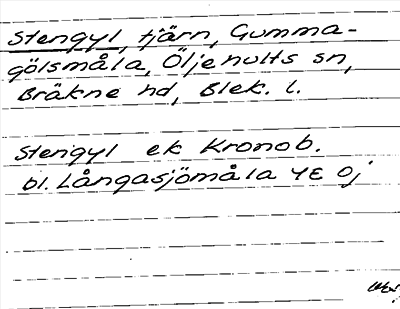 Stengyl, tjärn, Gumma-
gölsmåla, Öljehults sn,
Bräkne hd, Blek. l.
Stengyl ek Kronob.
bl. Långasjömåla 4E 0j